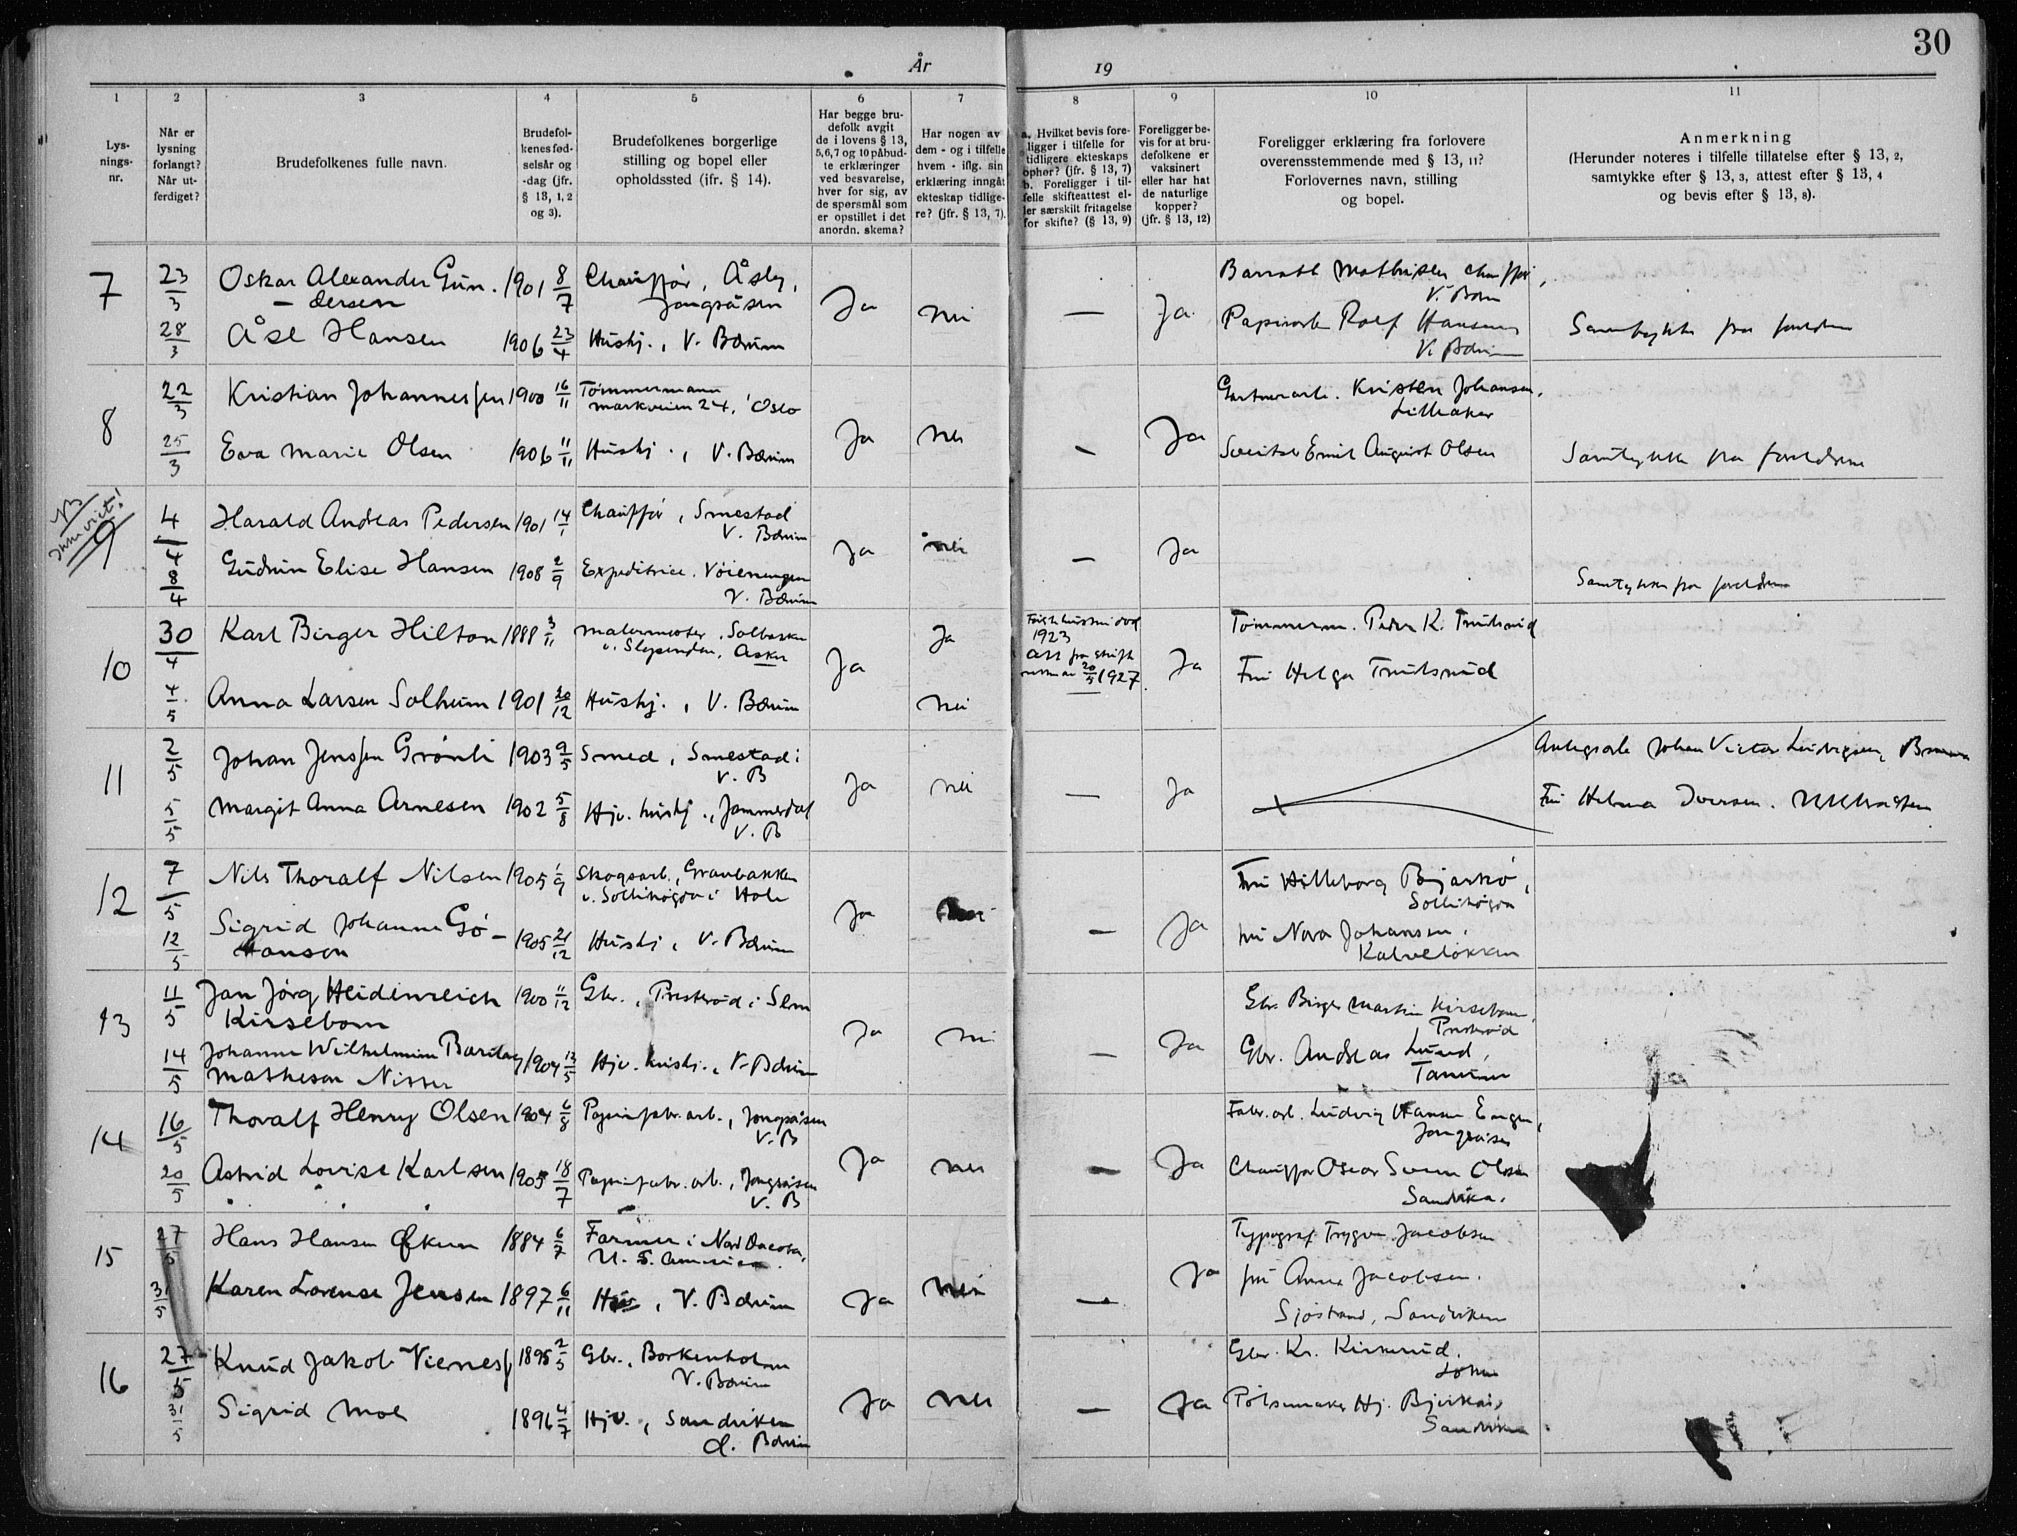 30
År
19
1
2
3
4
5
6
7
8
9
10
11
Lys-
nings-
nr.
Når er
lysning
forlangt?
Når ut-
ferdiget?
Brudefolkenes fulle navn.
Brudefol-
kenes fød-
selsår og
-dag (jfr.
§ 13, 1, 2
og 3).
Brudefolkenes borgerlige
stilling og bopel eller
opholdssted (jfr. § 14).
Har begge bru-
defolk avgit
de i lovens § 13,
5,6,7 og 10 påbud-
te erklæringer
ved besvarelse,
hver for sig, av
de spørsmål som
er opstillet i det
anordn. skema?
Har nogen av
dem - og i tilfelle
hvem - iflg. sin
erklæring inngåt
ekteskap tidlige-
re? (jfr. § 13, 7).
a. Hvilket bevis fore-
ligger i tilfelle for
tidligere ekteskaps
ophør? (jfr. § 13, 7)
b. Foreligger i til-
felle skifteattest el-
ler særskilt fritagelse
for skifte? (§ 13, 9)
Foreligger be-
vis for at bru-
defolkene er
vaksinert
eller har hat
de naturlige
kopper?
(jfr. § 13, 12)
Foreligger erklæring fra forlovere
overensstemmende med § 13, 11?
Forlovernes navn, stilling
og bopel.
Anmerkning
(Herunder noteres i tilfelle tillatelse efter § 13, 2,
samtykke efter § 13, 3, attest efter § 13, 4
og bevis efter § 13, 8).
7
23/3 Oskar Alexander Gun-
dersen 1901 8/7 Chauffør, Åsly,
Jongsåsen Ja Nei — Ja
V. Bærum
28/3 Åse Hansen 1906 23/4 Hushj., V. Bærum
Rolf Hansen
V. Bærum
Samtykke fra foreldre
8
22/3 Kristian Johannessen 1900 16/11 Tømmermann
Markveien 24, Oslo Ja Nei — Ja
Gartnerarb. Kristen Johansen,
Lilleaker
25/3 Eva Marie Olsen 1906 11/11 Hushj., V. Bærum
Emil August Olsen
Samtykke fra foreldrene
NB
9
4/4 Harald Andreas Pedersen 1901 14/1 Chauffør, Smestad
V. Bærum Ja nei — Ja
8/4 Gudrun Elise Hansen 1908 2/9 Expeditrice. Vøienenga
V. Bærum
Samtykke fra foreldrene
10
30/4 Karl Birger Hilton 1888 3/11 Malermester, Solbakken
v. Slependen, Asker Ja Ja
1923
20/5 1927 Ja
Tømmerm. Peder K. Trulsrud
4/5 Anna Larsen Solheim 1901 20/12 Hushj., V. Bærum Nei —
Fru Helga Trulsrud
11
2/5 Johan Jenssen Grønli 1903 9/5 Smed, Smestad i
V. B Ja nei — Ja
Johan Victor Ludvigsen,
5/5 Margit Anna Arnesen 1902 5/8 Hjv. hushj., Jammerdal
V. B
Fru Helma Iversen.
12
7/5 Nils Thoralf Nilsen 1905 1/9 Skogsarb., Granbakken
v. Sollihøgda i Hole Ja Nei — Ja
Fru Hilleborg Bjarkø,
Sollihøgda
12/5 Sigrid Johanne Gø-
Hansen 1905 21/12 Hushj, V. Bærum
fru Nora Johansen,
Kalveløkken
13
11/5 Jan Jørg Heidenreich
Kirsebom 1900 11/12 Gbr., Presterud i Sem Ja nei — Ja
Gbr. Birger Martin Kirsebom,
Presterud
14/5 Johanne Wilhelmine Barclay
Matheson Nisser 1904 13/5 Hjv. hushj., V. Bærum
Gbr. Andreas Lund,
Tanum
14
16/5 Thoralf Henry Olsen 1904 6/8 Papirfabr. arb., Jongsåsen
V. B Ja nei — Ja
Fabr. arb. Ludvig Hansen Engen,
Jongsåsen
20/5 Astrid Lovise Karlsen 1905 18/7 Papirfabr. arb., Jongsåsen
V. B
Chauffør Oscar Olsen
Sandvika.
15
27/5 Hans Hansen 1884 6/7 Farmer i Nord Dacota,
U. S. America. Ja Nei — Ja
Typograf Trygve Jacobsen
31/5 Karen Lovense Jensen 1897 6/11 V. Bærum
fru Anna Jacobsen.
Sjøstrand, Sandviken
16
27/5 Knud Jakob Viernes 1895 2/5 Gbr., Borkenholm
V. Bærum Ja nei — Ja
Gbr. Kr. Kirkerud.
31/5 Sigrid Moe 1896 4/7 Hjv., Sandviken
Ø. Bærum
Pølsemaker Hj. Bjerkås,
Sandviken